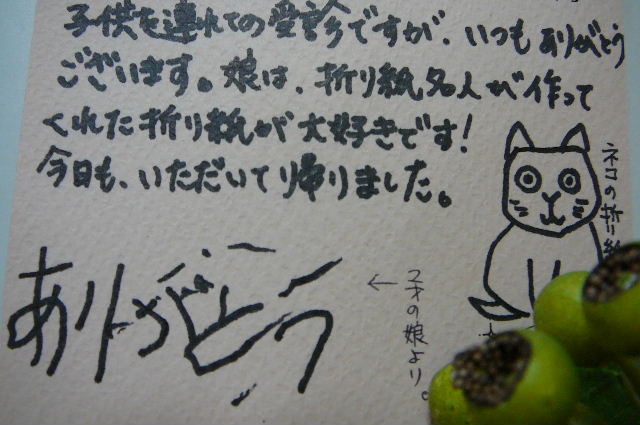 子供を連れての受診ですが、いつもありがとう
ございます。娘は、折り紙名人が作って
くれた折り紙が大好きです!
今日も、いただいてり帰りました。
ネコの折り紙
ありがとう
← 2才の娘より。